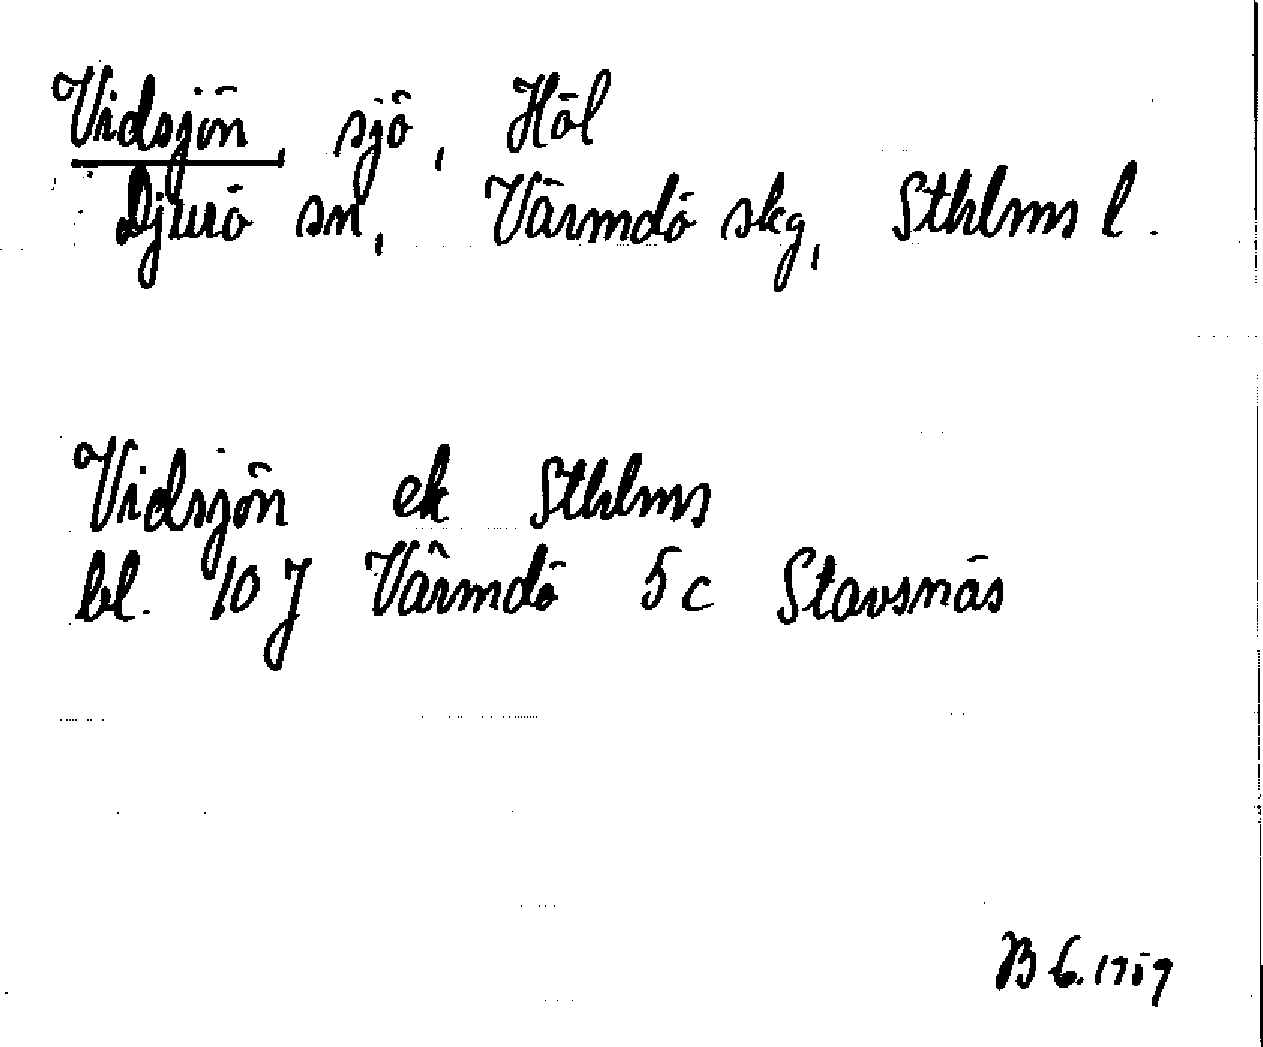 Vidsjön, sjö, Höl
Djurö sn, Värmdö skg, Sthlms l.
Vidsjön ek Sthlms
bl. 10 J Värmdö 5 c Stavsnäs